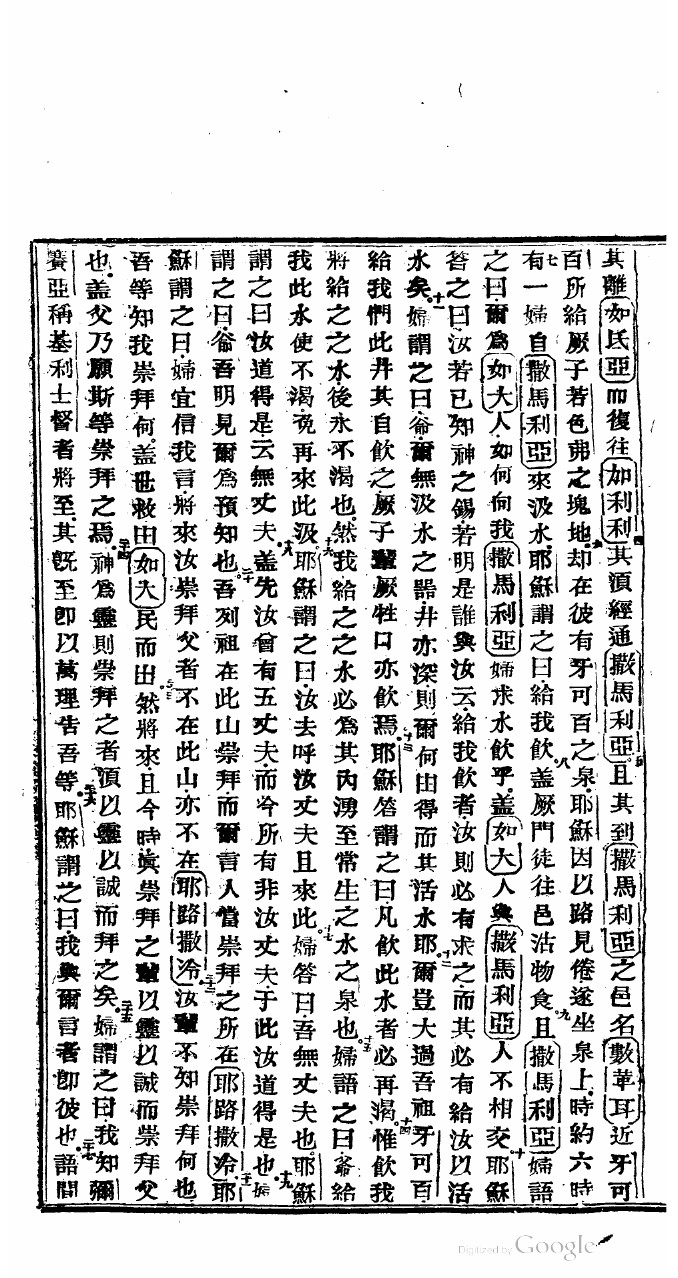 其離如氐亞而復往如利利四其湏經通撒馬利亞五且其到撒馬利亞之邑名數華耳近牙可
百所給厥子若色弗之塊地六却在彼有牙可百之泉耶穌因以路見倦遂坐泉上時約六時
七有一婦自撒馬利亞來汲水耶穌謂之曰給我飲八盖厥門徒往邑沽物食九且撒馬利亞婦語
之曰爾爲如大人如何向我撒馬利亞婦求水飲乎盖如大人與撒馬利亞人不相交十耶穌
答之曰汝若已知神之錫若明是誰與汝云給我飲者汝則必有求之而其必有給汝以活
水矣十一婦謂之曰爺爾無汲水之器井亦深則爾何由得而其活水耶十二爾豈大過吾祖牙可百
給我們此井其自飲之厥子輩厥牲口亦飲焉十三耶穌答謂之曰凡飲此水者必再渴十四惟飲我
將給之之水後永不渴也然我給之之水必爲其內湧至常生之水之泉也十五婦語之曰爺給
我此水使不渴免再來此汲十六耶穌謂之曰汝去呼汝丈夫且來此十七婦答曰吾無丈夫也耶穌
謂之曰汝道得是云無丈夫十八盖先汝曾有五丈夫而今所有非汝丈夫于此汝道得是也十九婦
謂之曰爺吾明見爾爲預知也二十吾列祖在此山崇拜而爾言人當崇拜之所在耶路撒冷二十一耶
穌謂之曰婦宜信我言將來汝崇拜父者不在此山亦不在耶路撒冷二十二汝輩不知崇拜何也
吾等知我崇拜何盖世救由如大民而出二十三然將來且今時眞崇拜之輩以靈以誠而崇拜父
也盖父乃願斯等崇拜之焉二十四神爲靈則崇拜之者湏以靈以誠而拜之矣二十五婦謂之曰我知彌
賽亞稱基利士督者將至其旣至卽以萬理告吾等二十六耶穌謂之曰我與爾言者卽彼也二十七語間
Digitized by Google